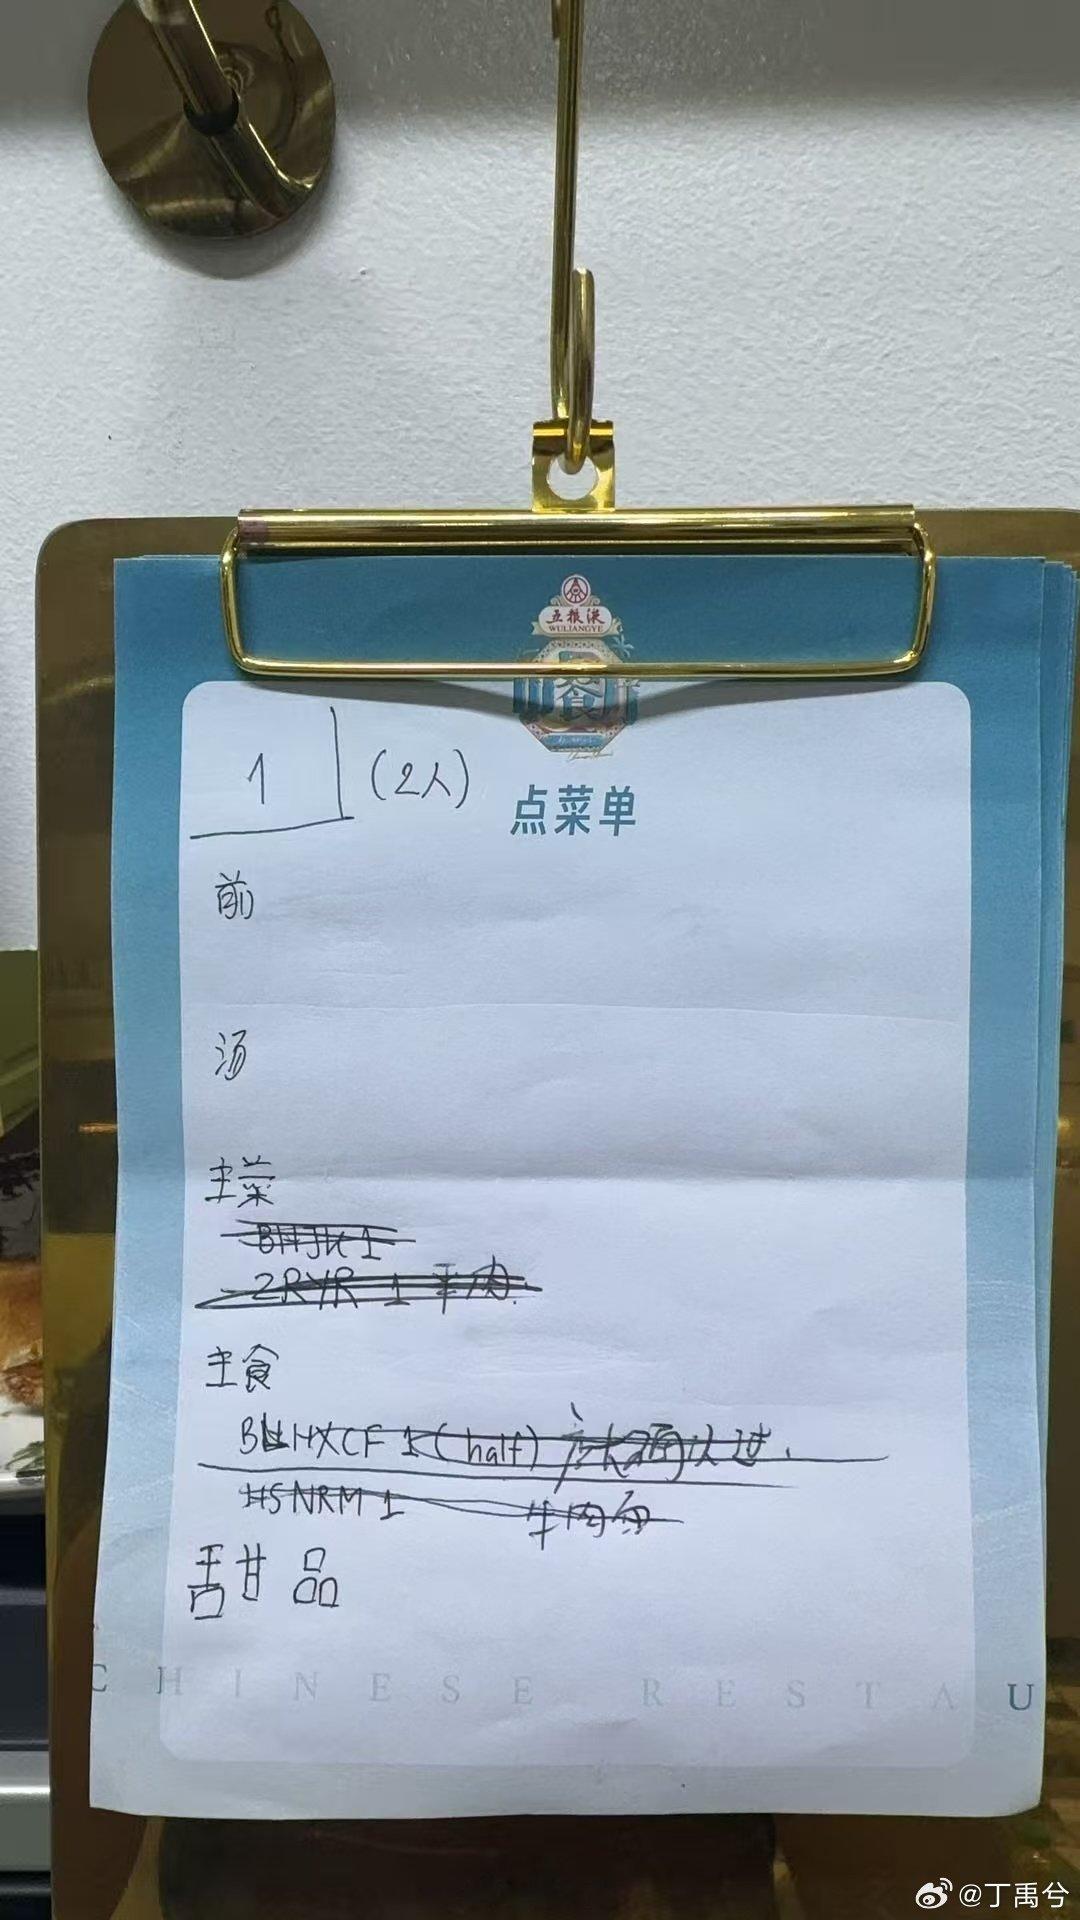 五粮液
WULIANGYE
1 (2人)
点菜单
前
汤
主菜
BHJK 1
ZRYR 1 羊肉
主食
HXCF 1 (half)
HSNRM 1 牛肉面
甜品
CHINESE RESTAU
@丁禹兮